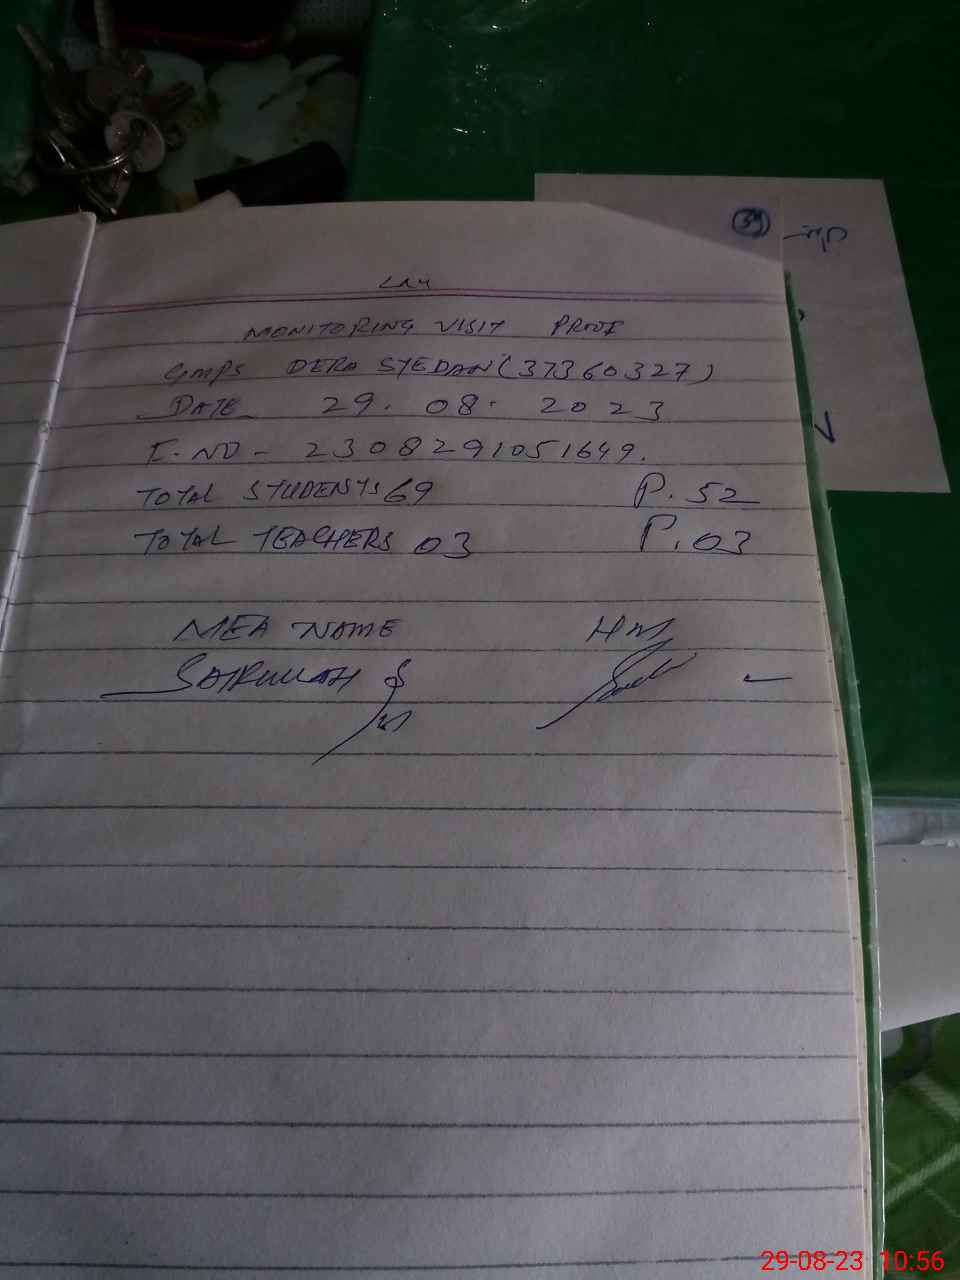 39
MONITORING VISIT PROOF
GMPS DERA SYEDAN (37360327)
DATE 29. 08. 2023
E.NO - 2308291051649.
TOTAL STUDENTS 69 P. 52
TOTAL TEACHERS 03 P. 03
MEA NAME HM
29-08-23 10:56